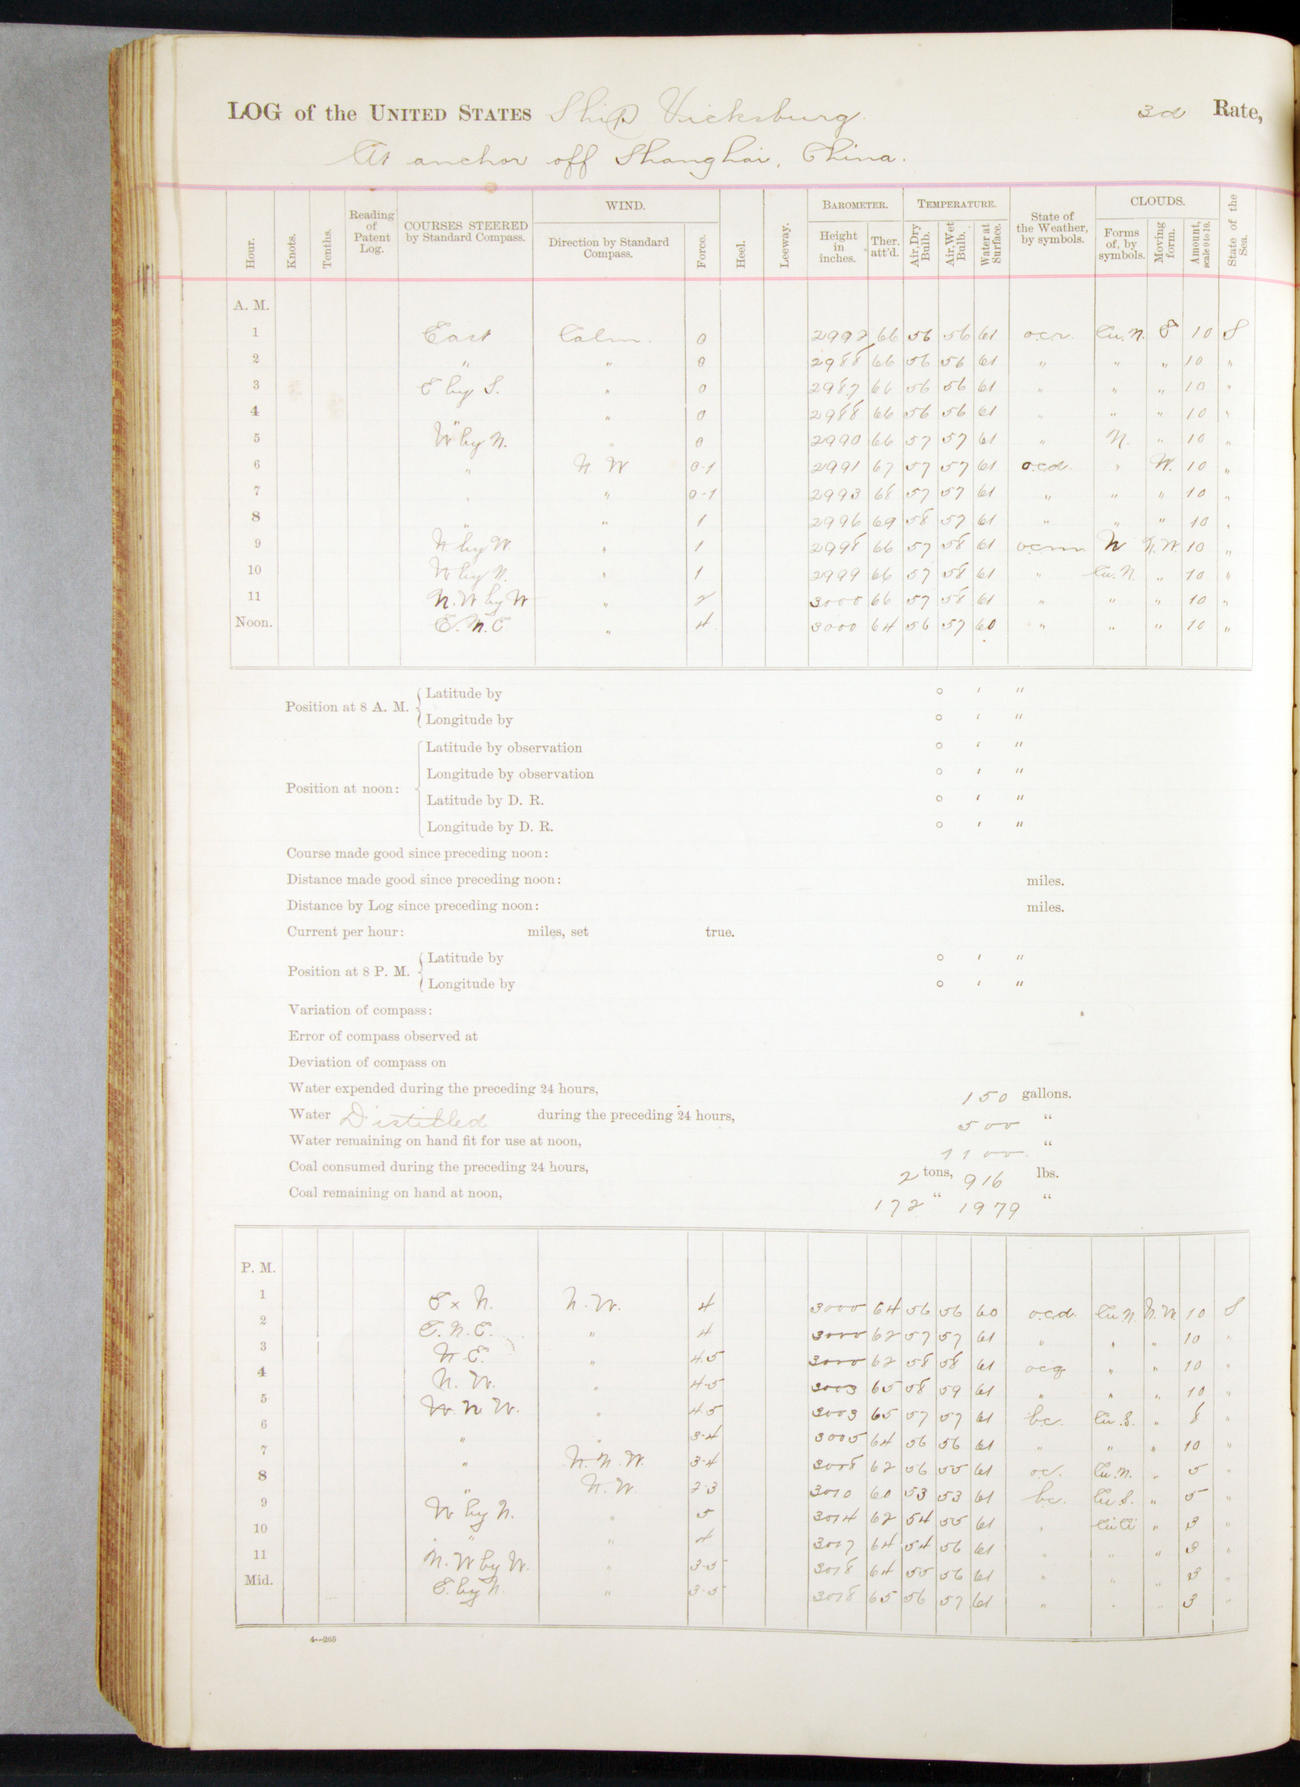 LOG of the UNITED STATES Ship Vicksburg. 3d Rate,
At anchor off Shanghai, China.
Hour. Knots. Tenths. Reading of Patent Log. COURSES STEERED by Standard Compass. WIND. Direction by Standard Compass. Force. Heel. Leeway. BAROMETER. Height in inches. Ther. att'd. TEMPERATURE. Air, Dry Bulb. Air, Wet Bulb. Water at Surface. State of the Weather, by symbols. CLOUDS. Forms of, by symbols. Moving form. Amount, scale 0 to 10. State of the Sea.
A. M.
1 East Calm. 0 2992 66 56 56 61 ocr. Cu. N. E 10 S
2 " " 0 2988 66 56 56 61 " " " 10 "
3 E by S. " 0 2987 66 56 56 61 " " " 10 "
4 " " 0 2988 66 56 56 61 " " " 10 "
5 W by N. " 0 2990 66 57 57 61 " N. " 10 "
6 " N W 0-1 2991 67 57 57 61 ocd. " W. 10 "
7 " " 0-1 2993 68 57 57 61 " " " 10 "
8 " " 1 2996 69 58 57 61 " " " 10 "
9 N by W " 1 2998 66 57 58 61 ocm N N.W. 10 "
10 W by N. " 1 2999 66 57 58 61 " Cu. N. " 10 "
11 N. W by W " 2 3000 66 57 58 61 " " " 10 "
Noon. E. N. E " 4 3000 64 56 57 60 " " " 10 "
Position at 8 A. M. Latitude by ° ' "
Longitude by ° ' "
Position at noon: Latitude by observation ° ' "
Longitude by observation ° ' "
Latitude by D. R. ° ' "
Longitude by D. R. ° ' "
Course made good since preceding noon:
Distance made good since preceding noon: miles.
Distance by Log since preceding noon: miles.
Current per hour: miles, set true.
Position at 8 P. M. Latitude by ° ' "
Longitude by ° ' "
Variation of compass:
Error of compass observed at
Deviation of compass on
Water expended during the preceding 24 hours, 150 gallons.
Water Distilled during the preceding 24 hours, 500 "
Water remaining on hand fit for use at noon, 1100 "
Coal consumed during the preceding 24 hours, 2 tons, 916 lbs.
Coal remaining on hand at noon, 172 " 1979 "
P. M.
1 E x N. N. W. 4 3000 64 56 56 60 ocd. Cu. N N. W 10 S
2 E. N. E. " 4 3000 62 57 57 61 " " " 10 "
3 N. E. " 4-5 3000 62 58 58 61 ocq " " 10 "
4 N. W. " 4-5 3003 65 58 59 61 " " " 10 "
5 W. N W. " 4-5 3003 65 57 57 61 bc. Cu. S. " 8 "
6 " " 3-4 3005 64 56 56 61 " " " 10 "
7 " N. N. W. 3-4 3008 62 56 55 61 oc. Cu. N. " 5 "
8 " N. W 2-3 3010 60 53 53 61 bc. Cu S. " 5 "
9 W by N. " 5 3014 62 54 55 61 " Cu Ci " 3 "
10 " " 4 3017 64 54 56 61 " " " 3 "
11 N. W by W. " 3-5 3018 64 55 56 61 " " " 3 "
Mid. E. by N. " 3-5 3018 65 56 57 61 " " " 3 "
4—265